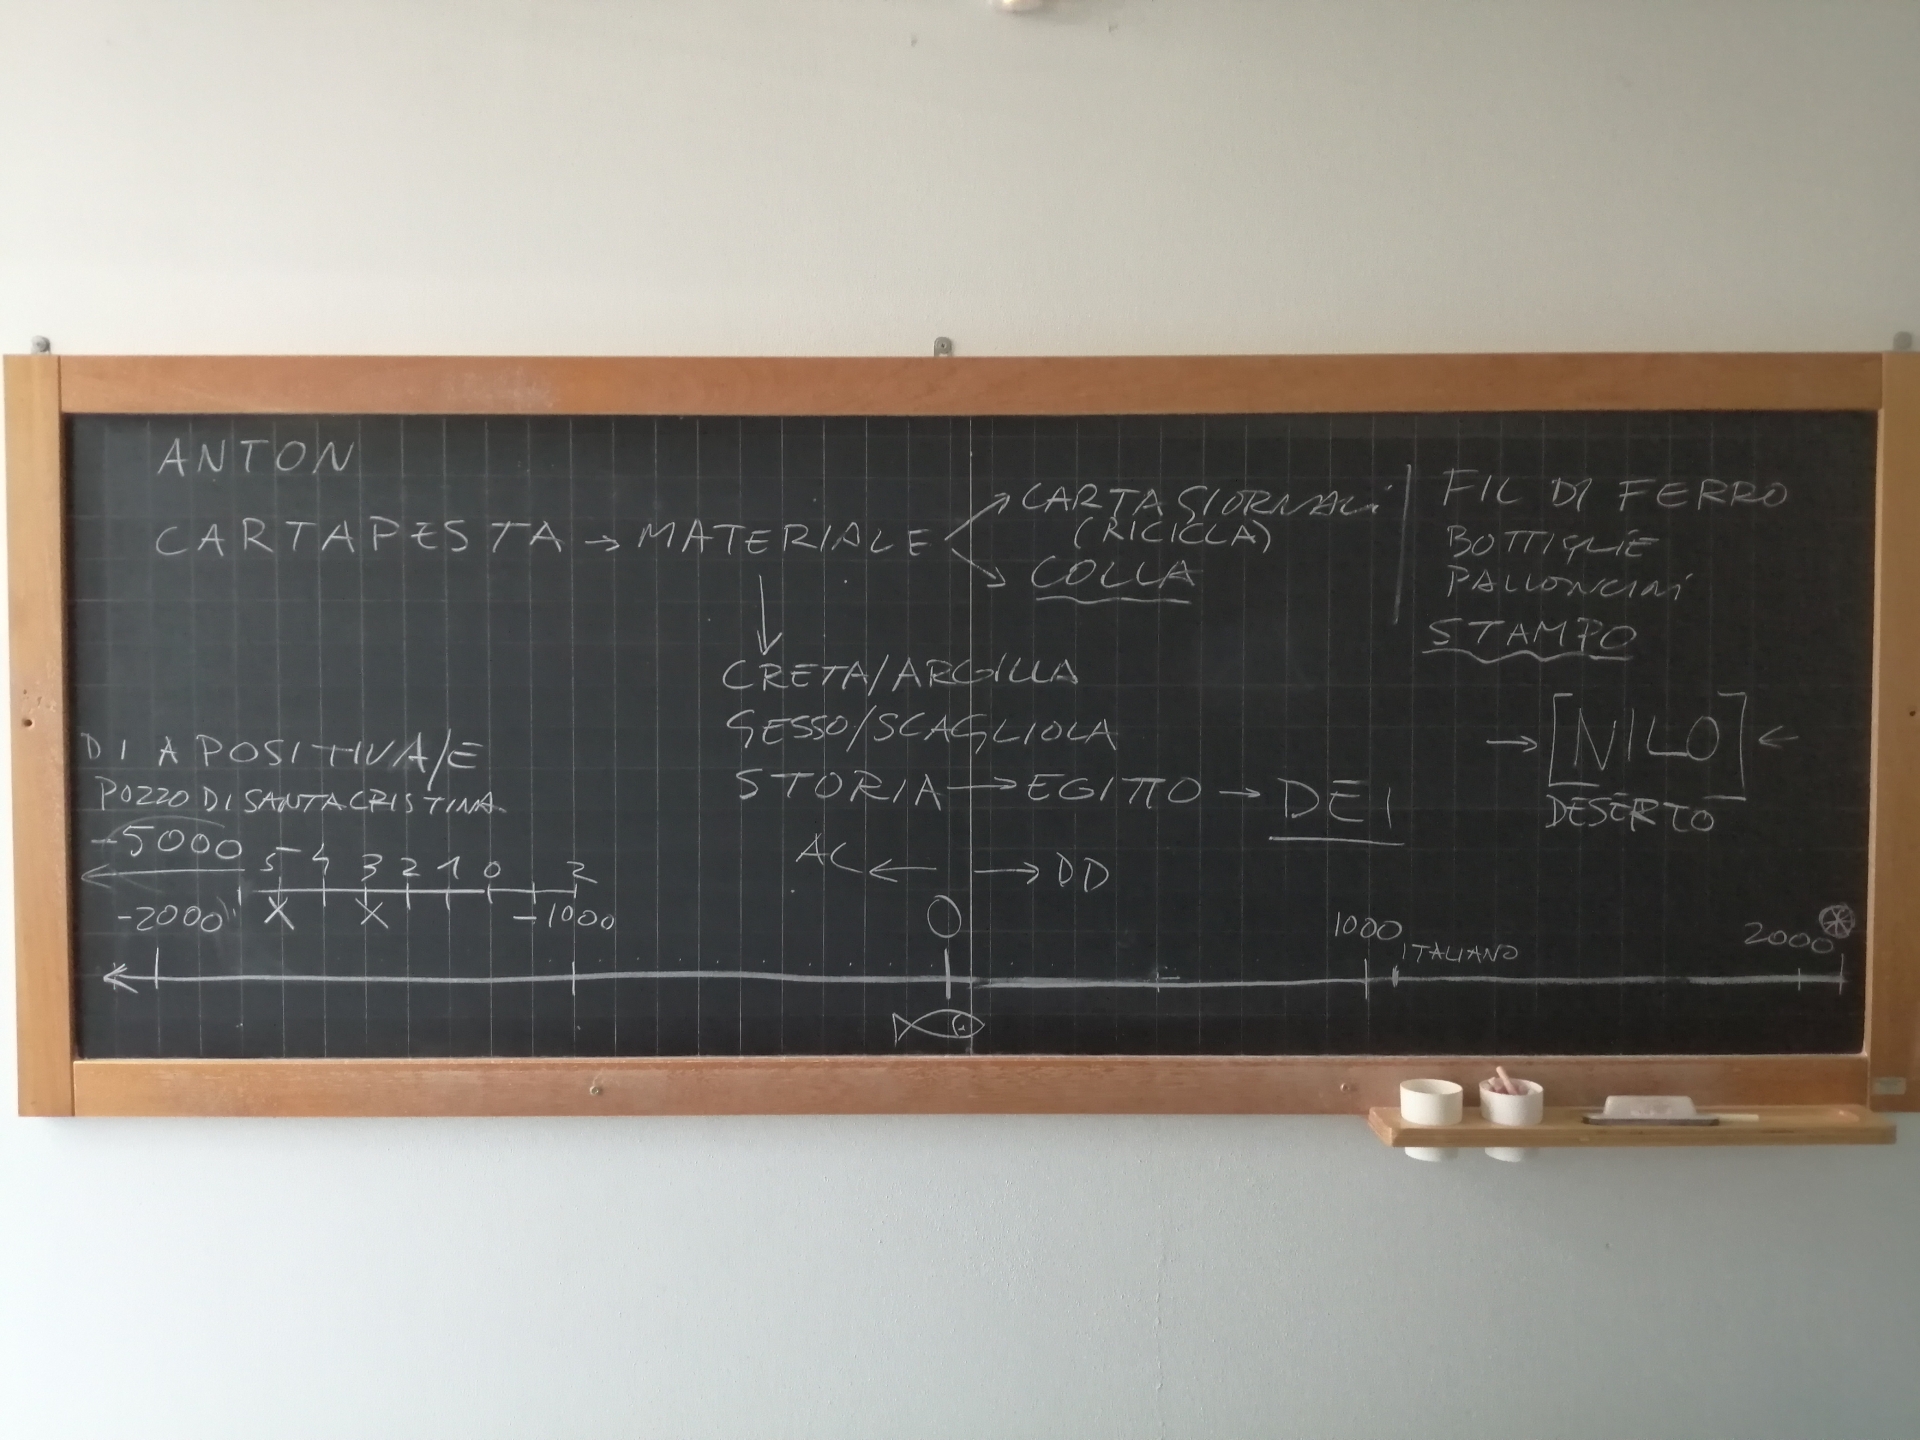 ANTON
CARTAPESTA → MATERIALE
CARTA GIORNALI
(RICICLA)
COLLA
FIL DI FERRO
BOTTIGLIE
PALLONCINI
STAMPO
CRETA/ARGILLA
GESSO/SCAGLIOLA
STORIA → EGITTO → DEI
→ [NILO] ←
DESERTO
DIAPOSITIVA/E
POZZO DI SANTA CRISTINA
-5000
5 4 3 2 1 0 2
X X
AC ← → DD
-2000 -1000 0 1000 ITALIANO 2000